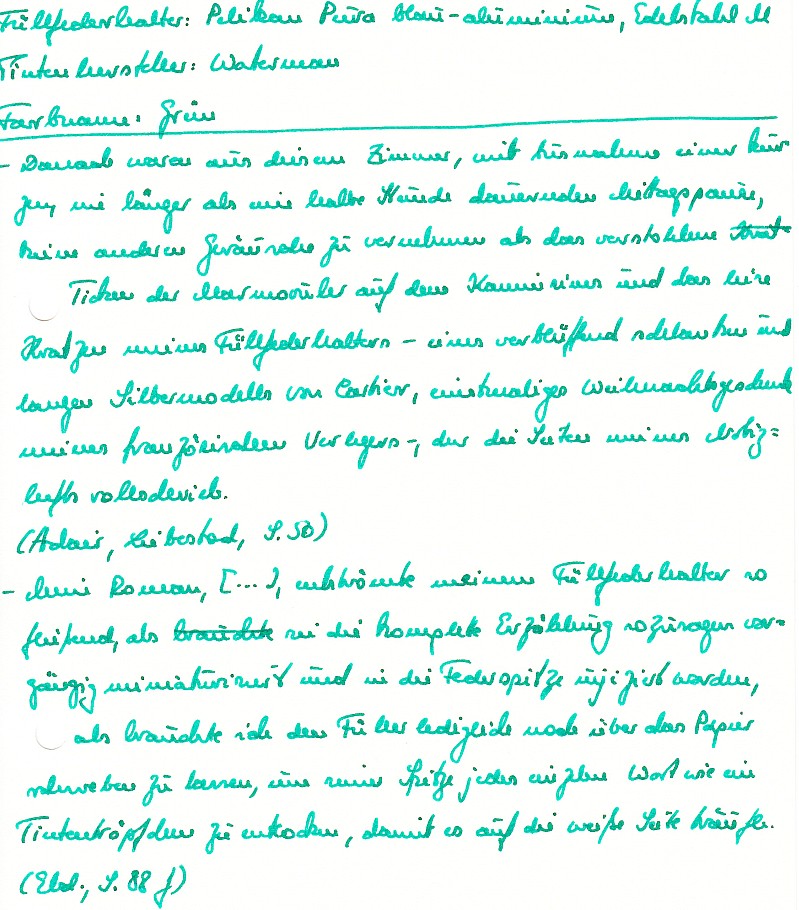 Füllfederhalter: Pelikan Pura blau-aluminium, Edelstahl M
Tintenhersteller: Waterman
Farbname: Grün
- Damals waren aus diesem Zimmer, mit Ausnahme einer kur
zen, nie länger als eine halbe Stunde dauernden Mittagspause,
keine anderen Geräusche zu vernehmen als das verstohlene Krat
Ticken der Marmoruhr auf dem Kaminsims und das leise
Kratzen meines Füllfederhalters - eines verblüffend schlanken und
langen Silbermodells von Cartier, einstmaliges Weihnachtsgeschenk
meines französischen Verlegers -, der die Seiten meines Notiz=
hefts vollschrieb.
(Adair, Liebestod, S. 50)
- Mein Roman, [...], entströmte meinem Füllfederhalter so
fließend, als brauchte sei die komplette Erzählung sozusagen vor=
gängig miniaturisiert und in die Federspitze injiziert worden,
als brauchte ich den Füller lediglich noch über das Papier
schweben zu lassen, um seiner Spitze jedes einzelne Wort wie ein
Tintentröpfchen zu entlocken, damit es auf die weiße Seite träufle.
(Ebd., S. 88 f)